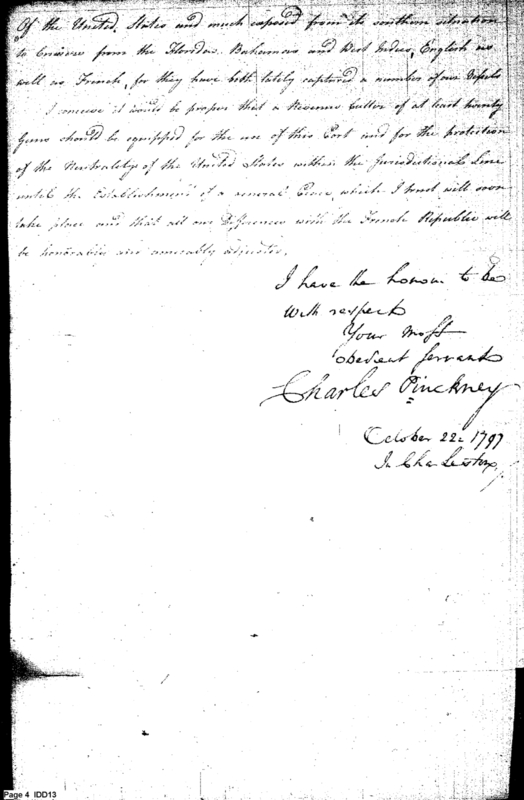 Of the United States and much exposed from its southern situation
to Cruisers from the Floridas Bahamas and West Indies, English as
well as French, for they have both lately captured a number of our Vessels
I conceive it would be proper that a Revenue Cutter of at least twenty
Guns should be equipped for the use of this Port and for the protection
of the Neutrality of the United States within the Jurisdictional Line
until the Establishment of a general Peace, which I trust will soon
take place and that all our Differences with the French Republic will
be honorably and amicably adjusted.
I have the honour to be
With respect
Your most
obedient servant
Charles Pinckney
October 22: 1797
In Charleston
Page 4 IDD13